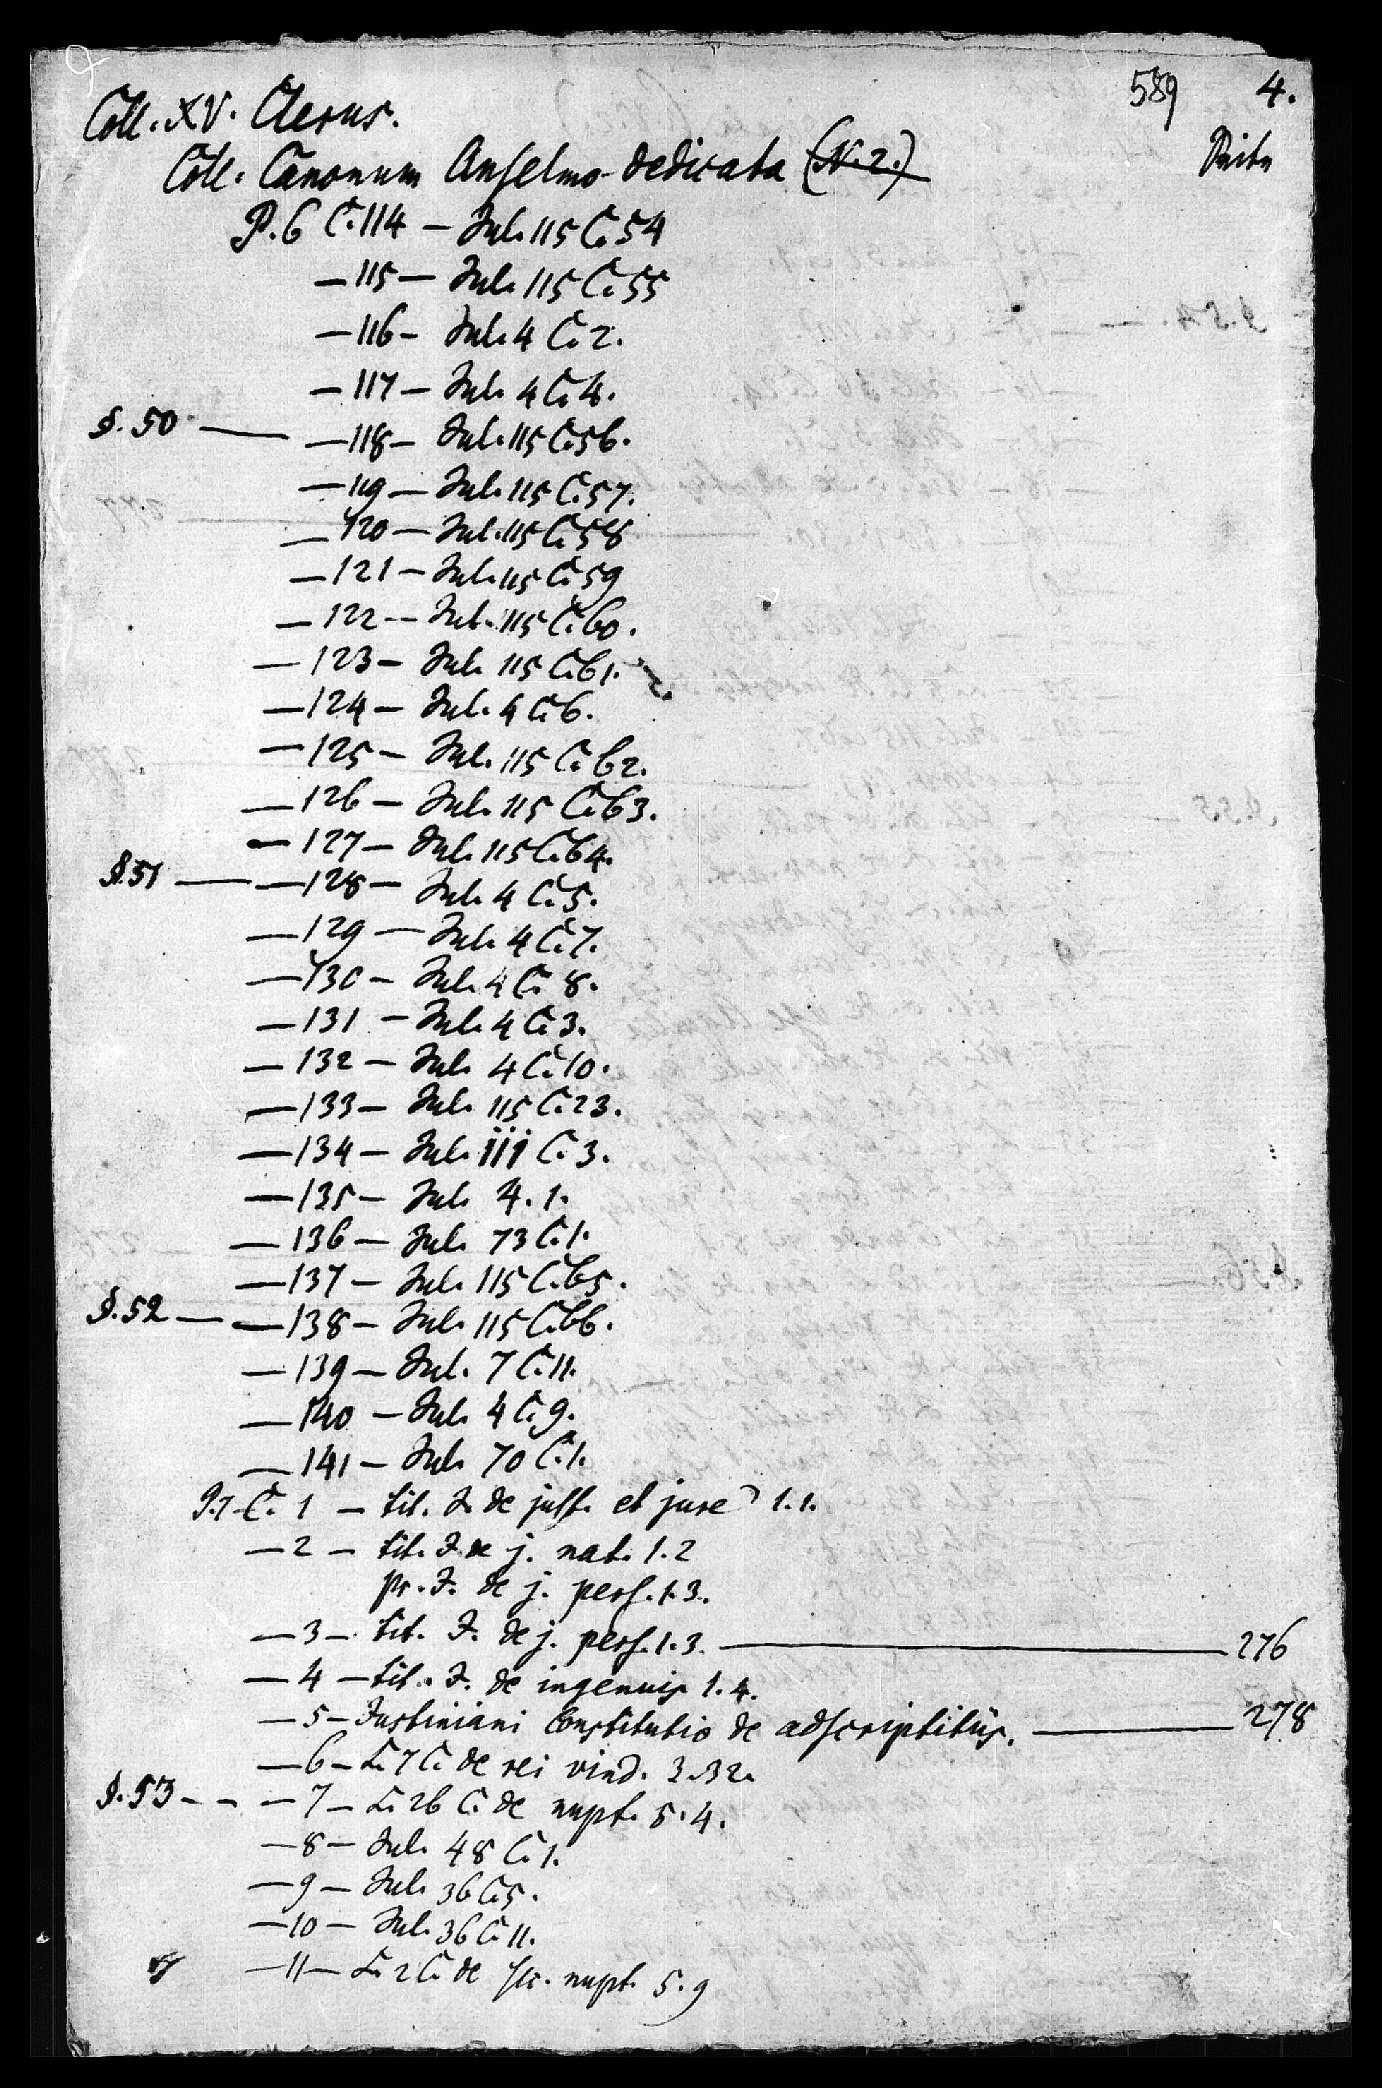 589 4.
Coll. XV. Clerus.
Coll. Canonum Anselmo dedicata (N. 2.)
P. 6 C. 114 — Jul. 115 C. 54
— 115 — Jul. 115 C. 55
— 116 — Jul. 4 C. 2.
— 117 — Jul. 4 C. 4.
§. 50 — — 118 — Jul. 115 C. 56.
— 119 — Jul. 115 C. 57.
— 120 — Jul. 115 C. 58
— 121 — Jul. 115 C. 59
— 122 — Jul. 115 C. 60.
— 123 — Jul. 115 C. 61.
— 124 — Jul. 4 C. 6.
— 125 — Jul. 115 C. 62.
— 126 — Jul. 115 C. 63.
— 127 — Jul. 115 C. 64.
§. 51 — — 128 — Jul. 4 C. 5.
— 129 — Jul. 4 C. 7.
— 130 — Jul. 4 C. 8.
— 131 — Jul. 4 C. 3.
— 132 — Jul. 4 C. 10.
— 133 — Jul. 115 C. 23.
— 134 — Jul. 111 C. 3.
— 135 — Jul. 4. 1.
— 136 — Jul. 73 C. 1.
— 137 — Jul. 115 C. 65.
§. 52 — — 138 — Jul. 115 C. 66.
— 139 — Jul. 7 C. 11.
— 140 — Jul. 4 C. 9.
— 141 — Jul. 70 C. 1.
P. 7 C. 1 — tit. J. de just. et jure 1. 1.
— 2 — tit. J. de j. nat. 1. 2
pr. J. de j. pers. 1. 3.
— 3 — tit. J. de j. pers. 1. 3. — 276
— 4 — tit. J. de ingenuis 1. 4.
— 5 — Justiniani Constitutio de adscriptitiis. — 278
— 6 — L. 7 C. de rei vind. 3. 32.
§. 53 - - — 7 — L. 26 C. de nupt. 5. 4.
— 8 — Jul. 48 C. 1.
— 9 — Jul. 36 C. 5.
— 10 — Jul. 36 C. 11.
— 11 — L. 2 C. de sec. nupt. 5. 9